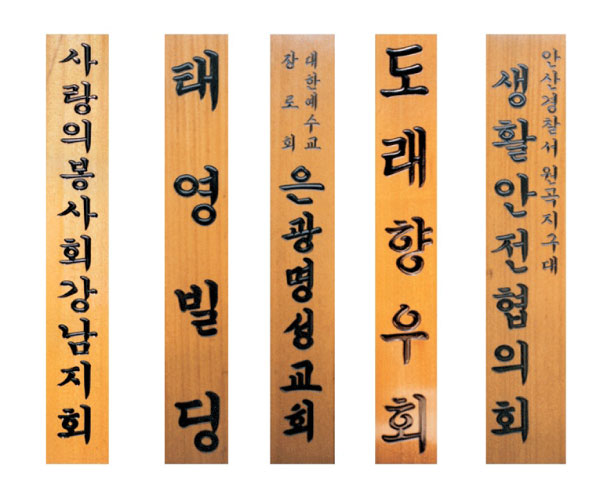 사랑의봉사회강남지회
태영빌딩
대한예수교
장로회
은광명성교회
도래향우회
안산경찰서원곡지구대
생활안전협의회